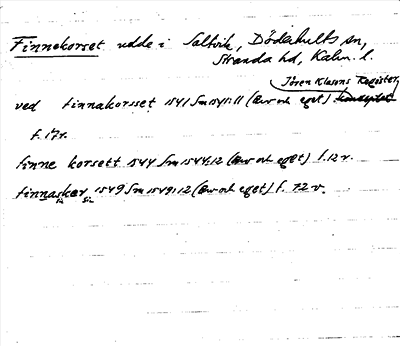 Finnekorset udde i Saltvik, Döderhults sn,
Stranda hd, Kalm. l.
Jören Klasons Register,
ved finnakorsset 1541 Sm 1541:11 (Arv och eget)
f. 17r.
finne korsett 1544 Sm 1544:12 (Arv och eget) f. 12 v.
finnasker 1549 Sm 1549:12 (Arv och eget) f. 72 v.